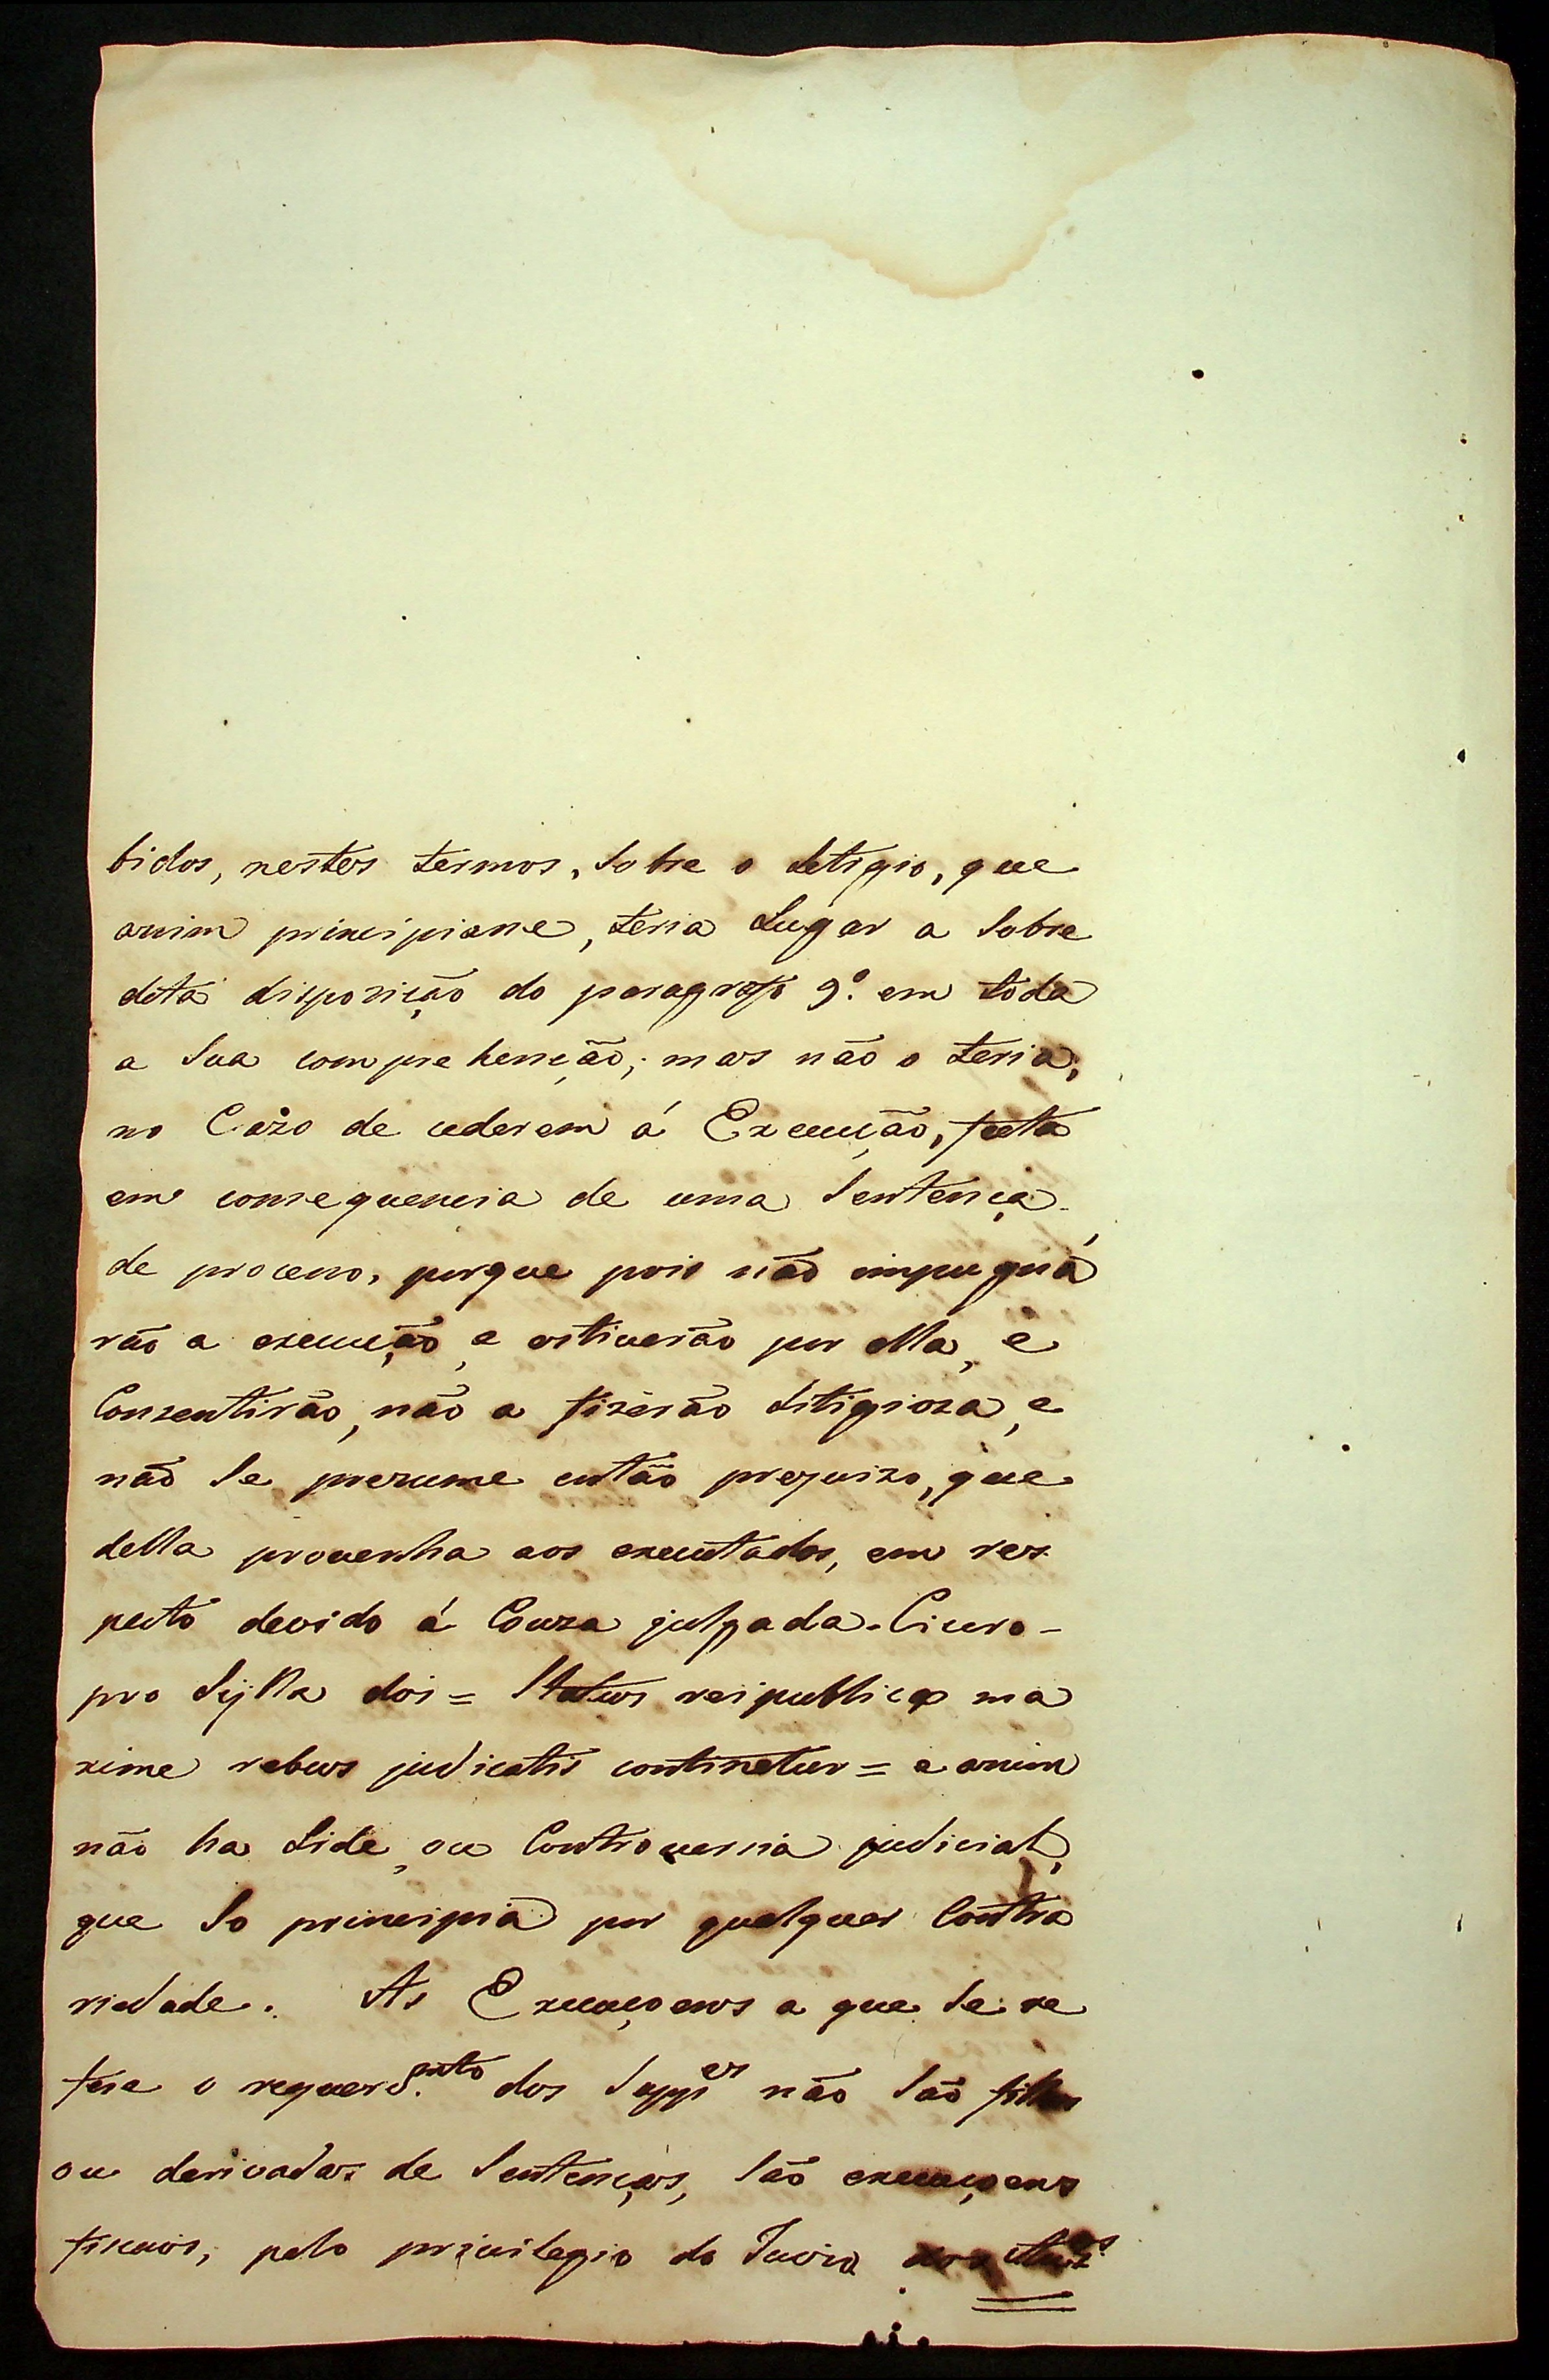 bidos, nestes termos, sobre o Letigio, que
assim principiasse, teria Lugar a Sobre
dita disposição do paragrafo 9º. em toda
a Sua comprehenção; mas não o teria,
no Cazo de cederem á Execução, feita
em consequencia de uma Sentença
de processo, porque pois não impugná
rão a execução, e estiverão por ella, e
Consentirão, não a fizerão Litigioza, e
não Se prezume então prejuizo, que
della provenha aos executados, em res
peito devido á Couza julgada. Cicero -
pro Sylla dis = Status reipublicæ ma
xime rebus judicatis continetur = e assim
não ha Lide, ou Controversia judicial,
que So principia por qualquer Contra
riedade. As Execuçoens a que Se re
fere o requer.mto dos Suppes não São filhas
ou derivadas de Sentenças, São execuçoens
fiscaes, pelo privilegio do Juizo